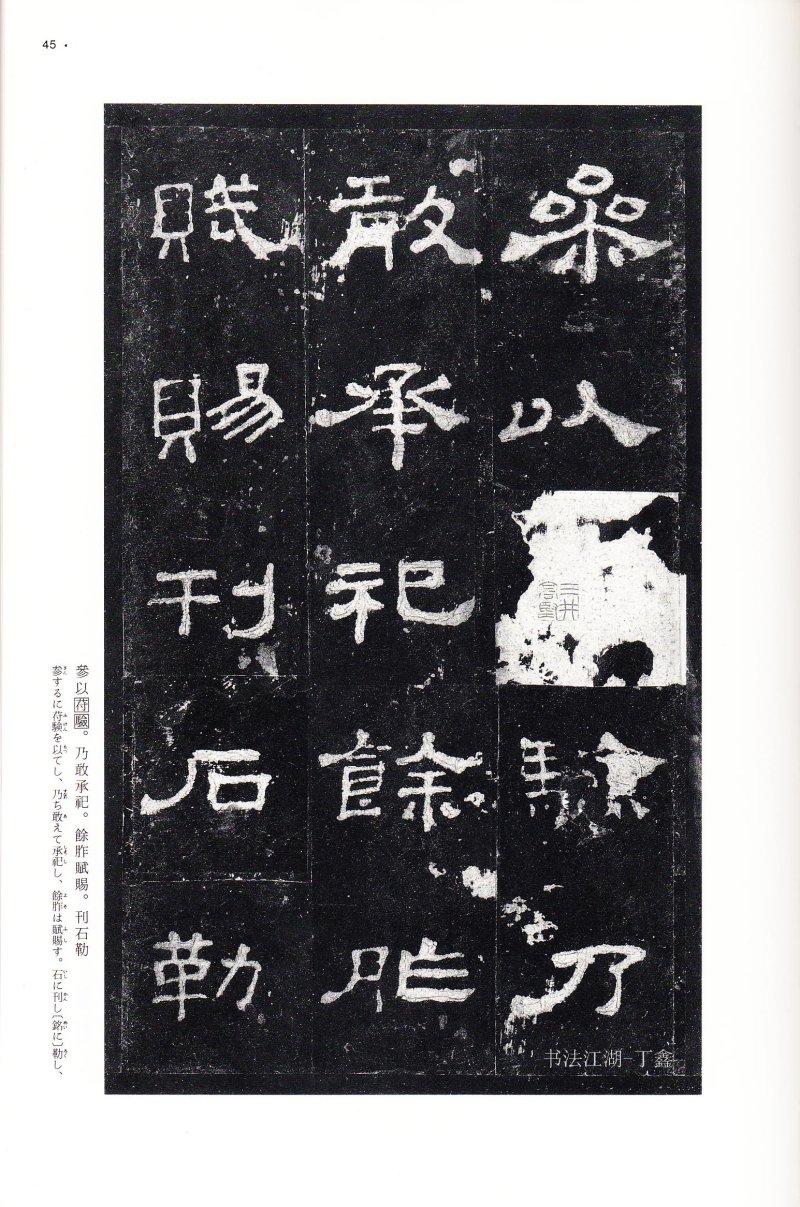 45
參以
驗乃
敢承祀餘胙
賦賜刊石勒
書法江湖-丁鑫
參以苻驗。乃敢承祀。餘胙賦賜。刊石勒
参するに苻験を以てし、乃ち敢えて承祀し、餘胙は賦賜す。石に刊し〔銘に〕勒し、